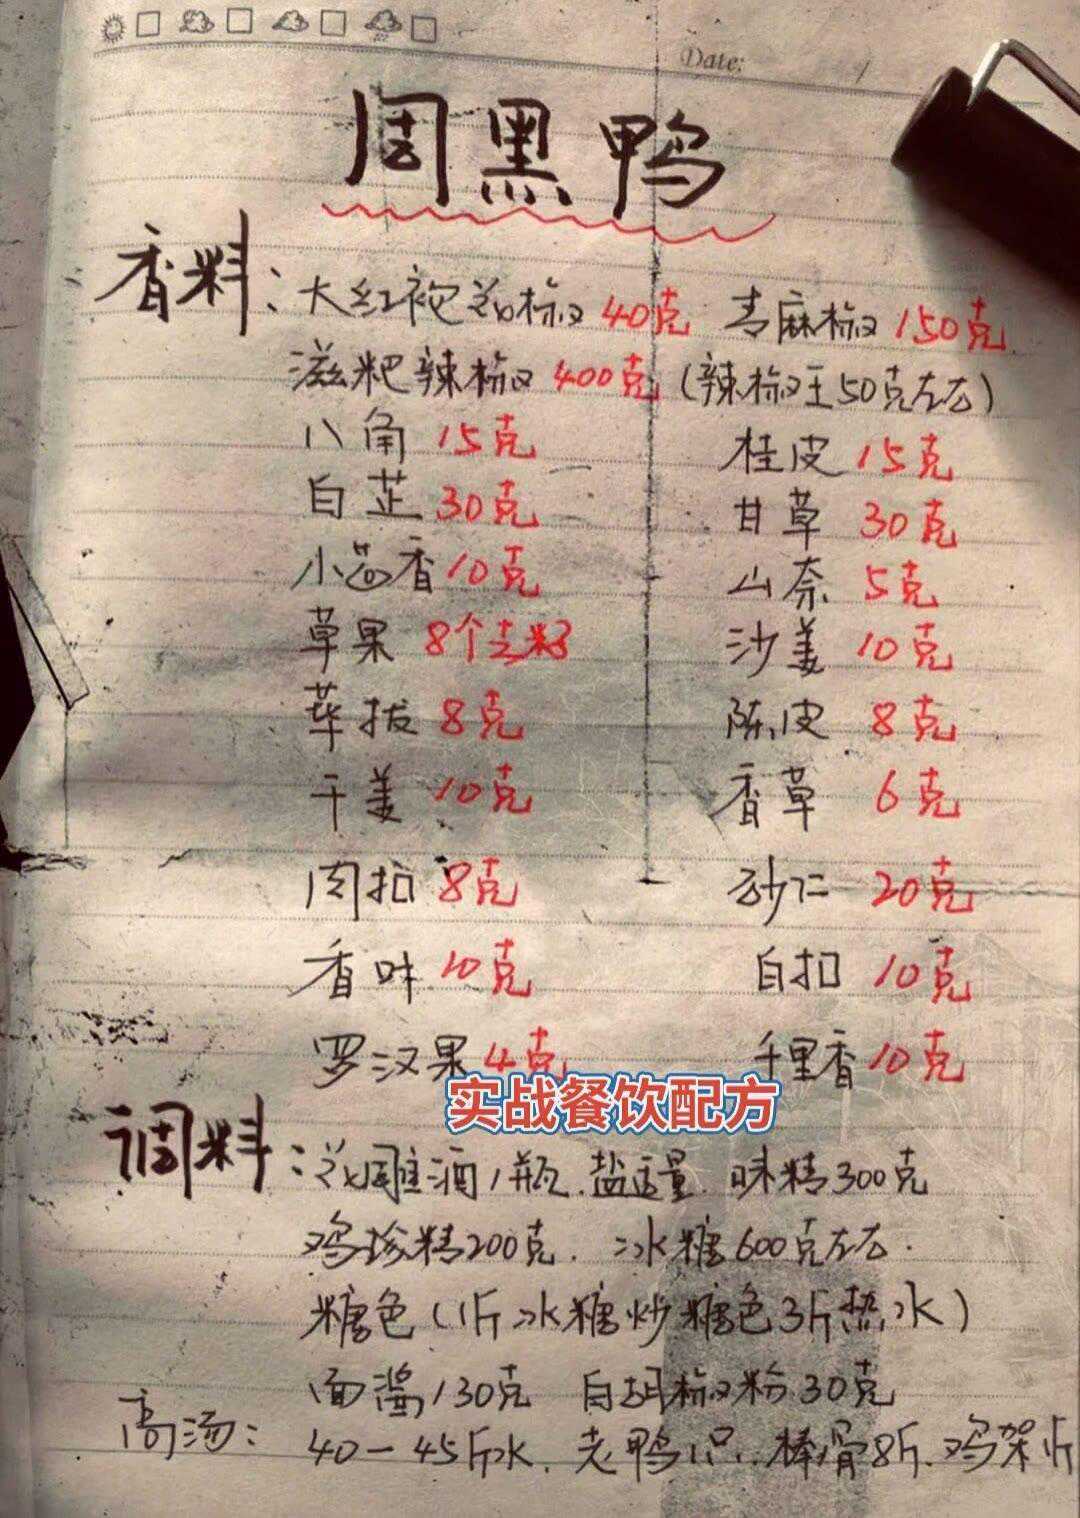 Date:
周黑鸭
香料: 大红袍花椒 40克 青麻椒 150克
滋粑辣椒 400克 (辣椒王50克左右)
八角 15克 桂皮 15克
白芷 30克 甘草 30克
小茴香 10克 山奈 5克
草果 8个去籽 沙姜 10克
荜拔 8克 陈皮 8克
干姜 10克 香草 6克
肉扣 8克 砂仁 20克
香叶 10克 白扣 10克
罗汉果 4克 千里香 10克
实战餐饮配方
调料: 花雕酒1瓶. 盐适量. 味精300克
鸡珍精200克. 冰糖600克左右.
糖色(1斤冰糖炒糖色3斤热水)
面酱130克 白胡椒粉30克
高汤: 40-45斤水. 老鸭1只. 棒骨8斤. 鸡架1斤